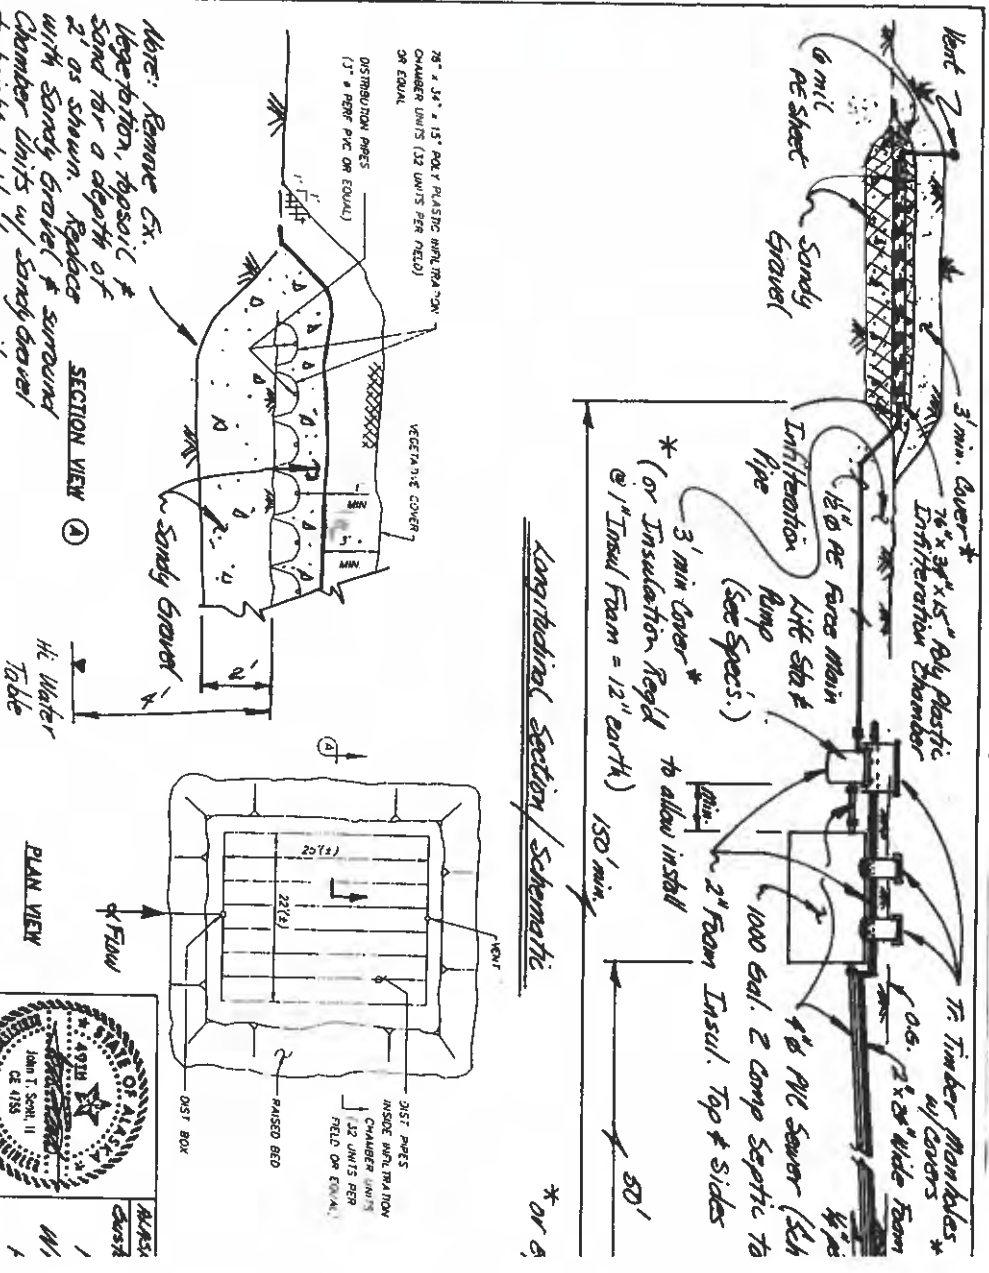 Vent
6 mil
PE sheet
Sandy
Gravel
3' min. Cover *
76" x 34" x 15" Poly Plastic
Infilteration Chamber
Infilteration
Pipe
1½" ø PE Force Main
Lift Sta &
Pump
(see Specs.)
3' min Cover *
* (or Insulation Reqd
@ 1" Insul Foam = 12" earth)
Tr. Timber Manholes *
w/ Covers
O.G.
2" x 24" Wide Foam
4" ø PVC Sewer (Sch
1000 Gal. 2 Comp Septic T
2" Foam Insul. Top & Sides
Min.
to allow install
150' min.
50'
Longitudinal Section / Schematic
* or e
76" x 34" x 15" POLY PLASTIC INFILTRATION
CHAMBER UNITS (32 UNITS PER FIELD)
OR EQUAL
DISTRIBUTION PIPES
(3" ø PERF PVC OR EQUAL)
VEGETATIVE COVER
1'
1'
1'
MIN
3'
MIN
Sandy Gravel
2'
4'
Hi Water
Table
Note: Remove Ex.
Vegetation, topsoil &
Sand for a depth of
2' as shown. Replace
with Sandy Gravel & surround
Chamber Units w/ Sandy Gravel
SECTION VIEW
A
A
25'(±)
22'(±)
VENT
FLOW
DIST PIPES
INSIDE INFILTRATION
CHAMBER UNITS
(32 UNITS PER
FIELD OR EQUAL)
RAISED BED
DIST BOX
PLAN VIEW
STATE OF ALASKA
49TH
John T. Schil, II
CE 4756